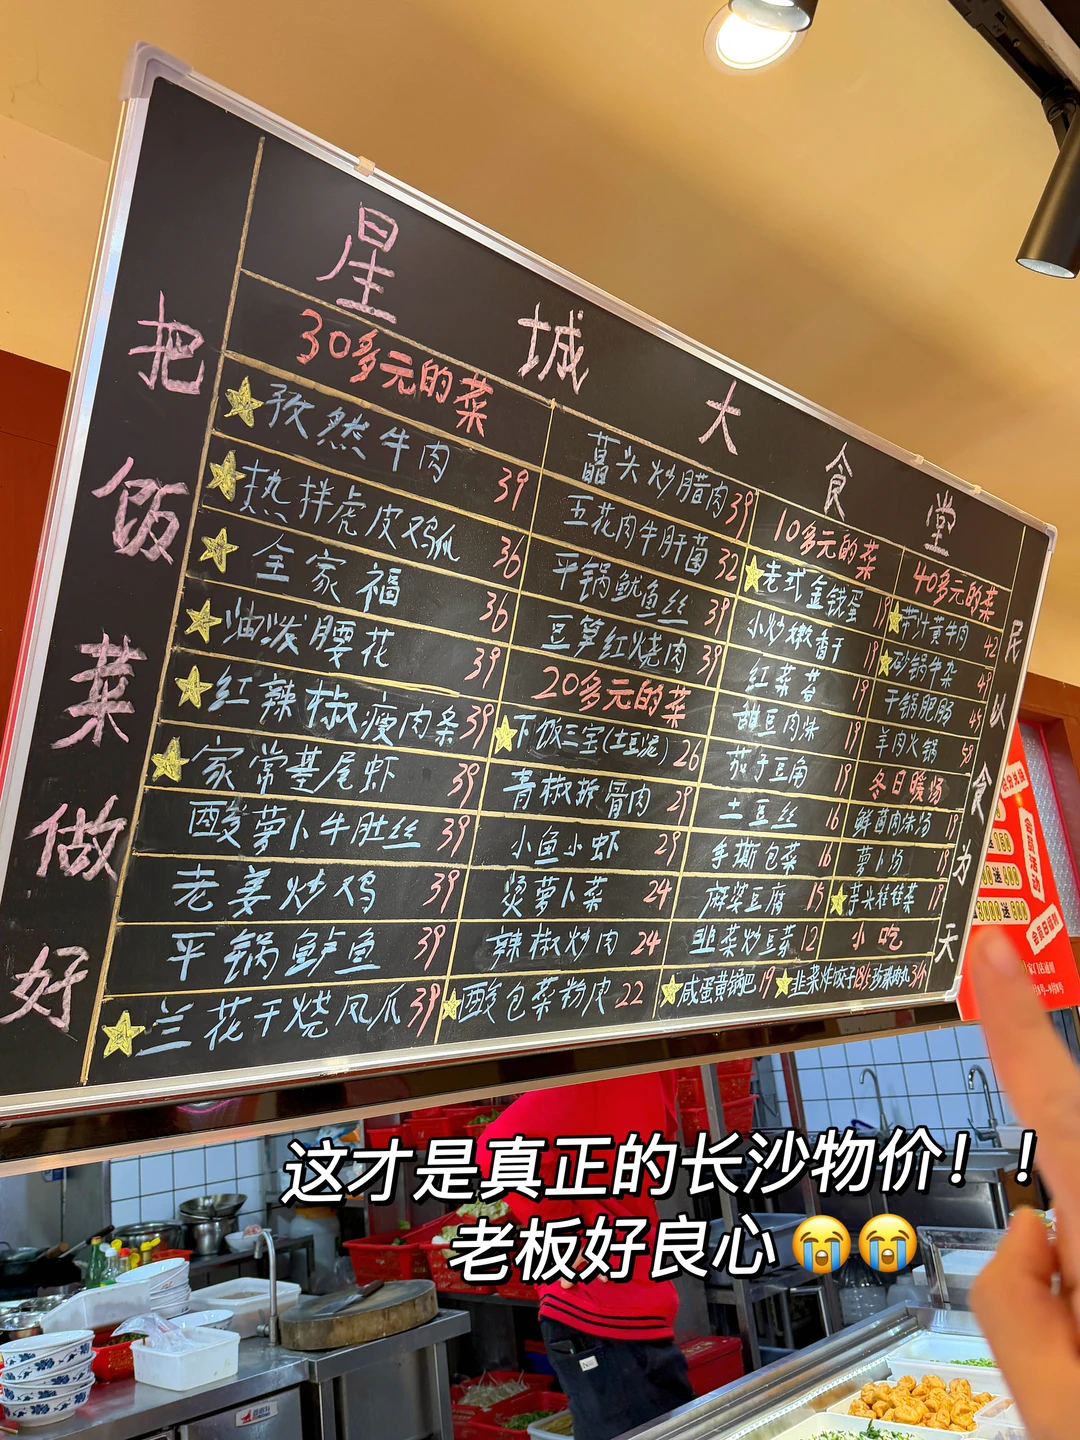 星城大食堂
把饭菜做好
民以食为天
30多元的菜
孜然牛肉 39
热拌虎皮鸡爪 36
全家福 36
油泼腰花 39
红辣椒瘦肉条 39
家常基尾虾 39
酸萝卜牛肚丝 39
老姜炒鸡 39
平锅鲈鱼 39
兰花干烧凤爪 39
藠头炒腊肉 39
五花肉牛肝菌 32
平锅鱿鱼丝 39
豆笋红烧肉 39
20多元的菜
下饭三宝(土豆泥) 26
青椒拆骨肉 29
小鱼小虾 29
烫萝卜菜 24
辣椒炒肉 24
酸包菜粉皮 22
10多元的菜
老式金钱蛋 19
小炒嫩香干 19
红菜苔 19
甜豆肉沫 19
茄子豆角 19
土豆丝 16
手撕包菜 16
麻婆豆腐 15
韭菜炒豆芽 12
咸蛋黄锅巴 19
40多元的菜
带汁黄牛肉 42
砂锅牛杂 49
干锅肥肠 45
羊肉火锅 58
冬日暖汤
鲜菌肉沫汤 19
萝卜汤 19
芋头娃娃菜 19
小吃
韭菜炸饺子 18/5 珍珠肉丸 3/1
会员日福利
这才是真正的长沙物价！！
老板好良心😭😭